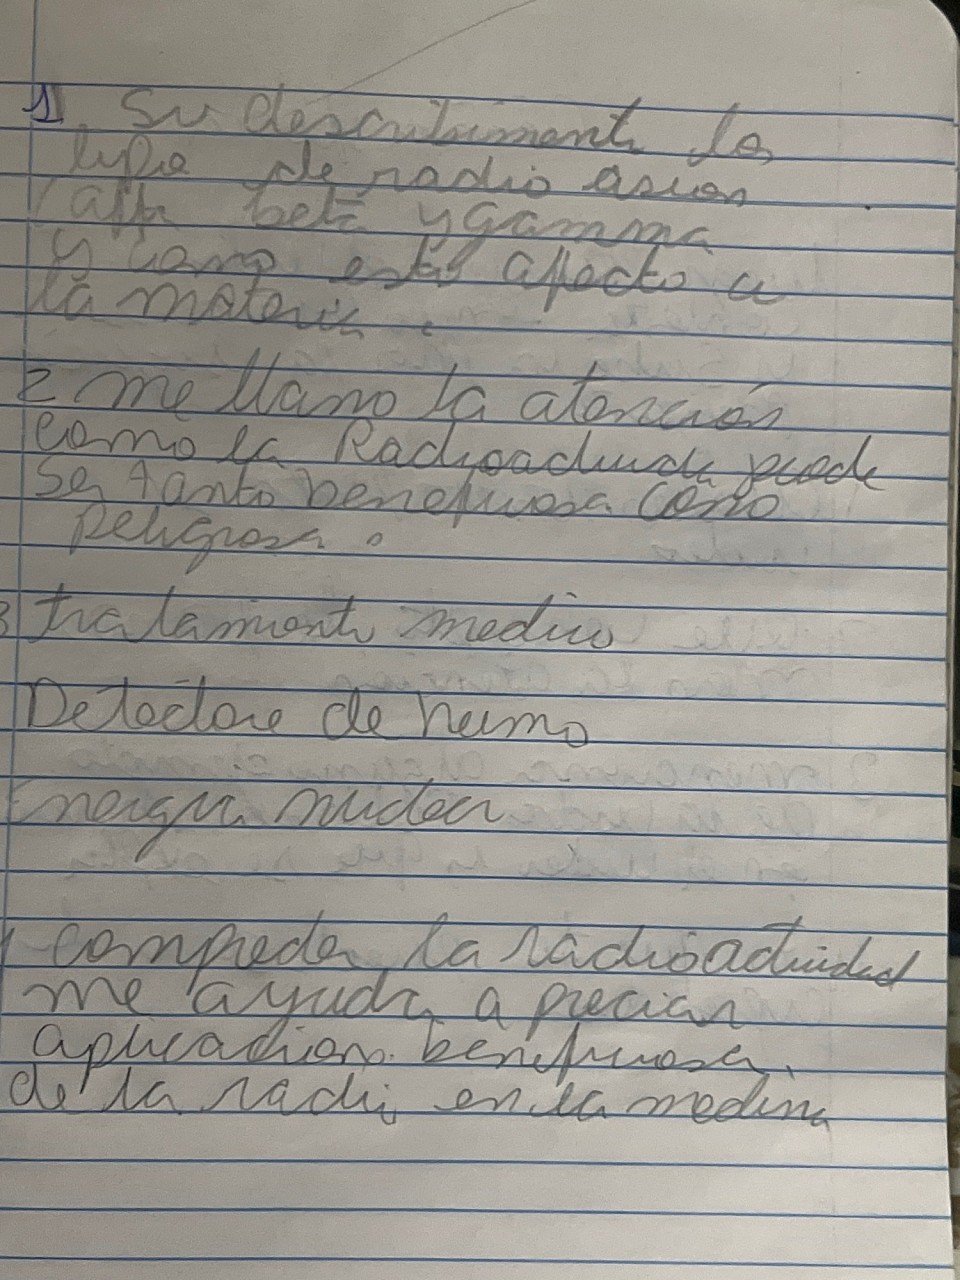 1 Su descubrimiento los
tipo de radio asion
(alfa beta y gamma
y como estas afecta a
la materia.
2 me llamo la atención
como la Radioactivida puede
ser tanto beneficiosa como
peligrosa.
3 tratamiento medico
Detectore de humo
Energia nuclear
compreder la radioactividad
me ayuda a preciar
aplicacion beneficiosa
de la radi en la medina